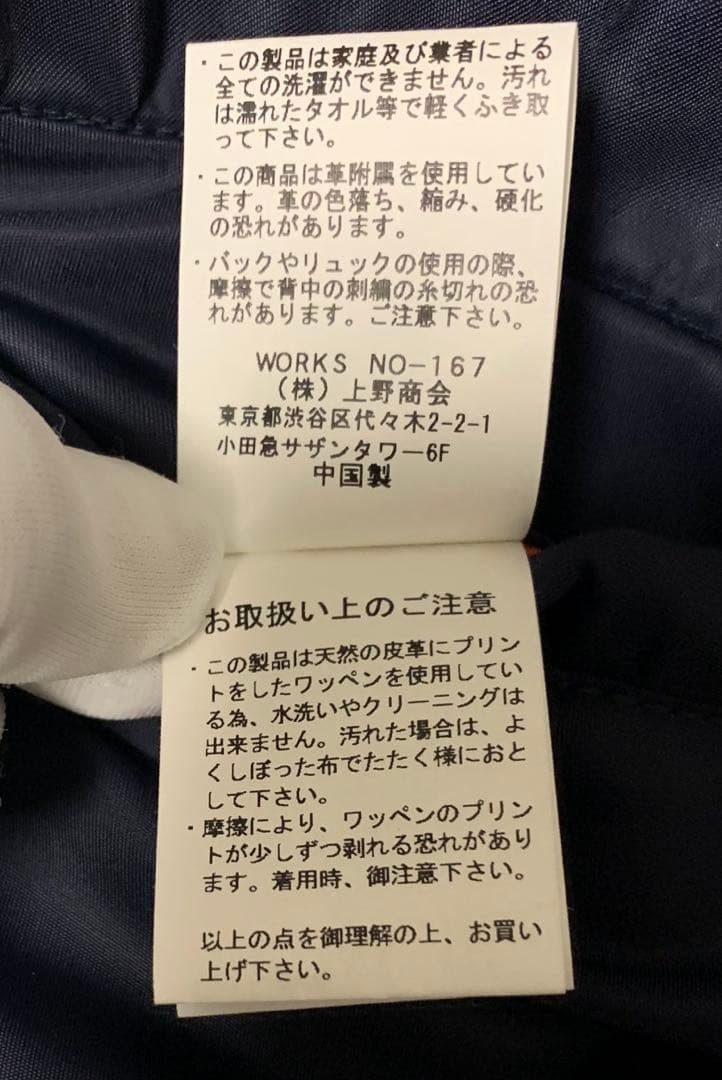 ・この製品は家庭及び業者による
全ての洗濯ができません。汚れ
は濡れたタオル等で軽くふき取
って下さい。
・この商品は革附属を使用してい
ます。革の色落ち、縮み、硬化
の恐れがあります。
・バックやリュックの使用の際、
摩擦で背中の刺繍の糸切れの恐
れがあります。ご注意下さい。
WORKS NO-167
（株）上野商会
東京都渋谷区代々木2-2-1
小田急サザンタワー6F
中国製
お取扱い上のご注意
・この製品は天然の皮革にプリン
トをしたワッペンを使用してい
る為、水洗いやクリーニングは
出来ません。汚れた場合は、よ
くしぼった布でたたく様におと
して下さい。
・摩擦により、ワッペンのプリン
トが少しずつ剥れる恐れがあり
ます。着用時、御注意下さい。
以上の点を御理解の上、お買い
上げ下さい。